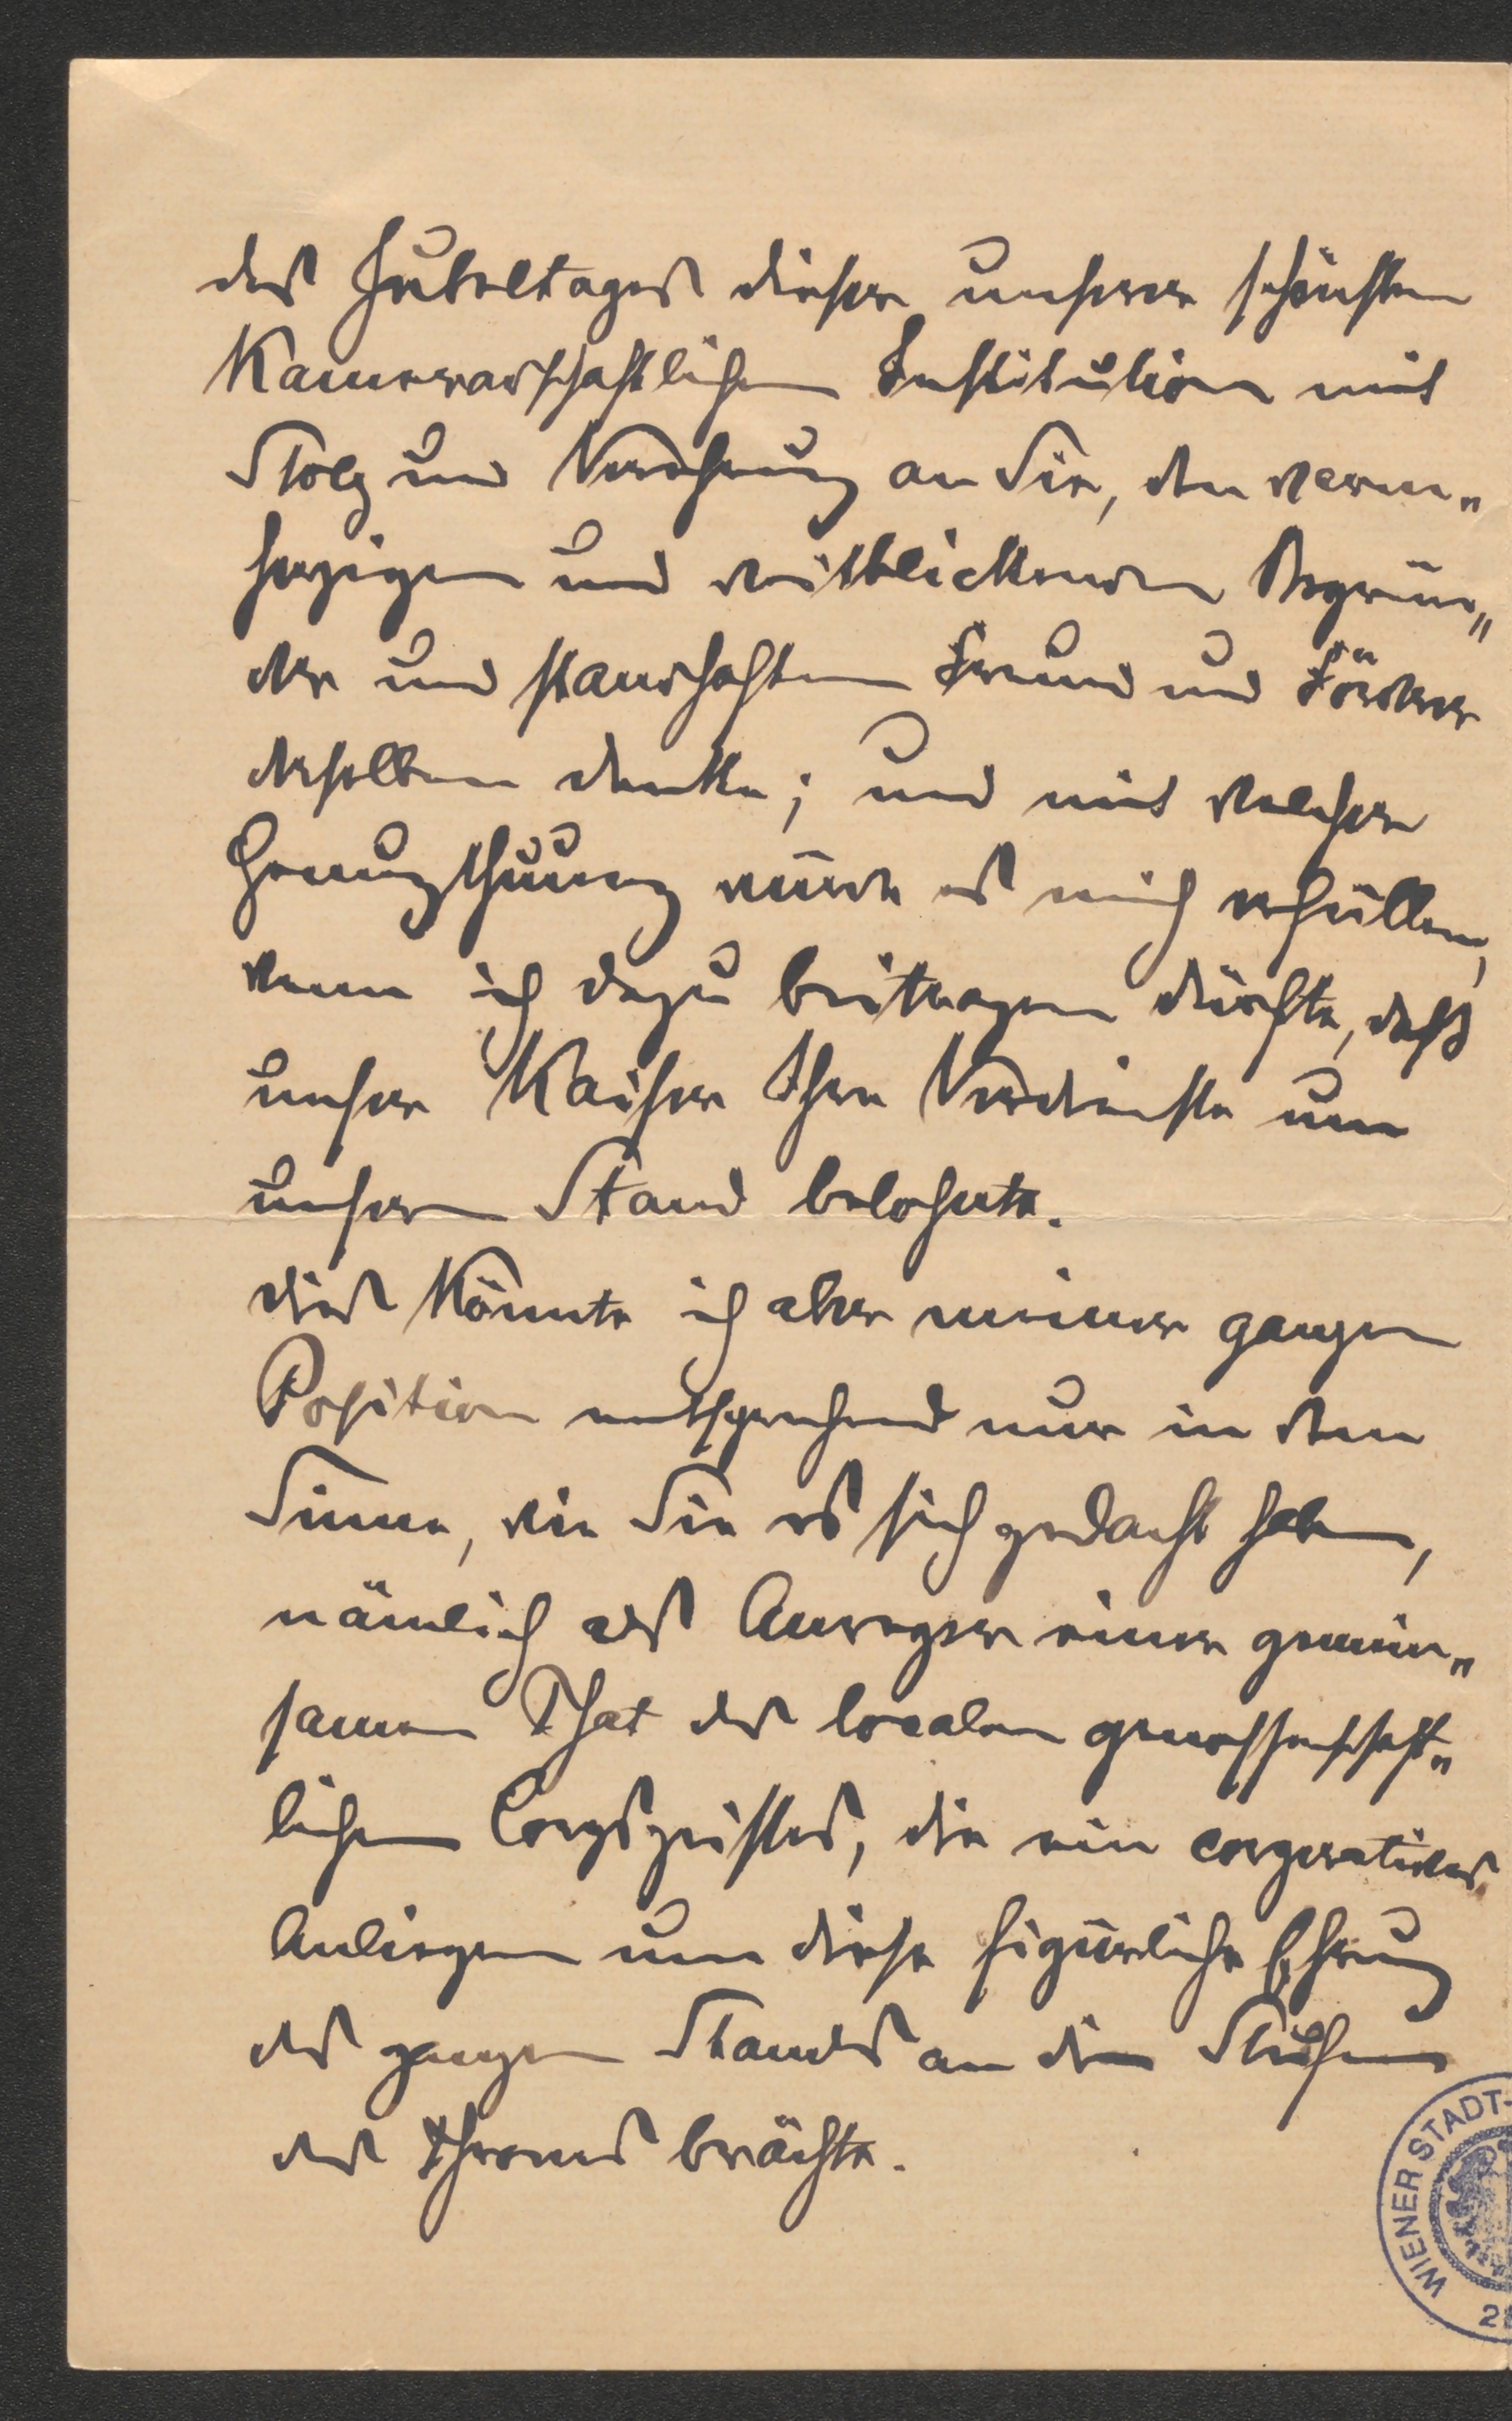 des Jubeltages dieser unserer schönsten
Kameradschaftlichen Institution mit
Stolz und Verehrung an Sie, den warm„
herzigen und weitblickenden Begrün„
der und standhaften Freund und Förderer
derselben denke; und mit welcher
Genugthuung würde es mich erfüllen,
wenn ich dazu beitragen dürfte, daß
unser Kaiser Ihre Verdienste um
unsern Stand belohnte.
Dies Könnte ich aber meiner ganzen
Position entsprechend nur in dem
Sinne, wie Sie es sich gedacht haben,
nämlich als Anreger einer gemein„
samen That des localen genossenschaft„
lichen Corpsgeistes, die ein corporatives
Anliegen um diese figürliche Ehrung
des ganzen Standes an die Stufen
des Thrones brächte.
WIENER STADT-